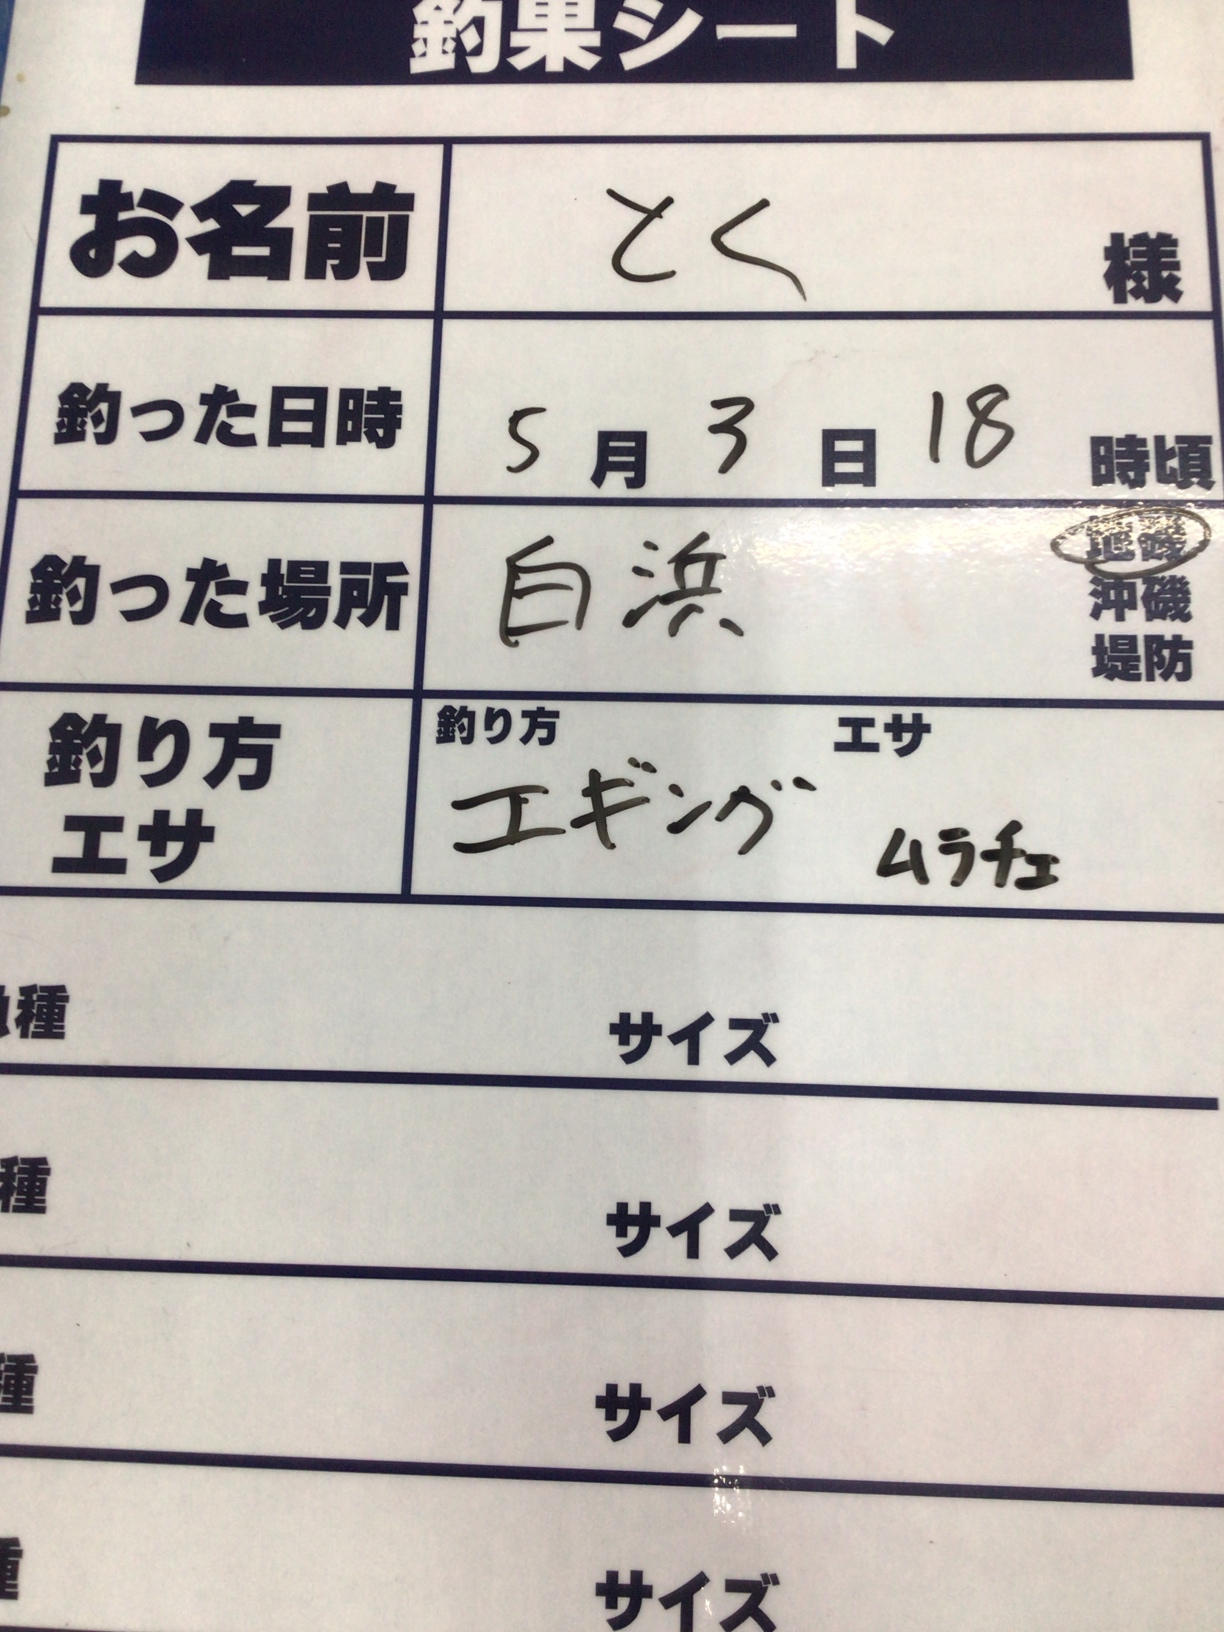 釣果シート
お名前 とく 様
釣った日時 5月3日18時頃
釣った場所 白浜 地磯
沖磯
堤防
釣り方 エサ
釣り方 エギング
エサ ムラチェ
魚種 サイズ
種 サイズ
種 サイズ
種 サイズ